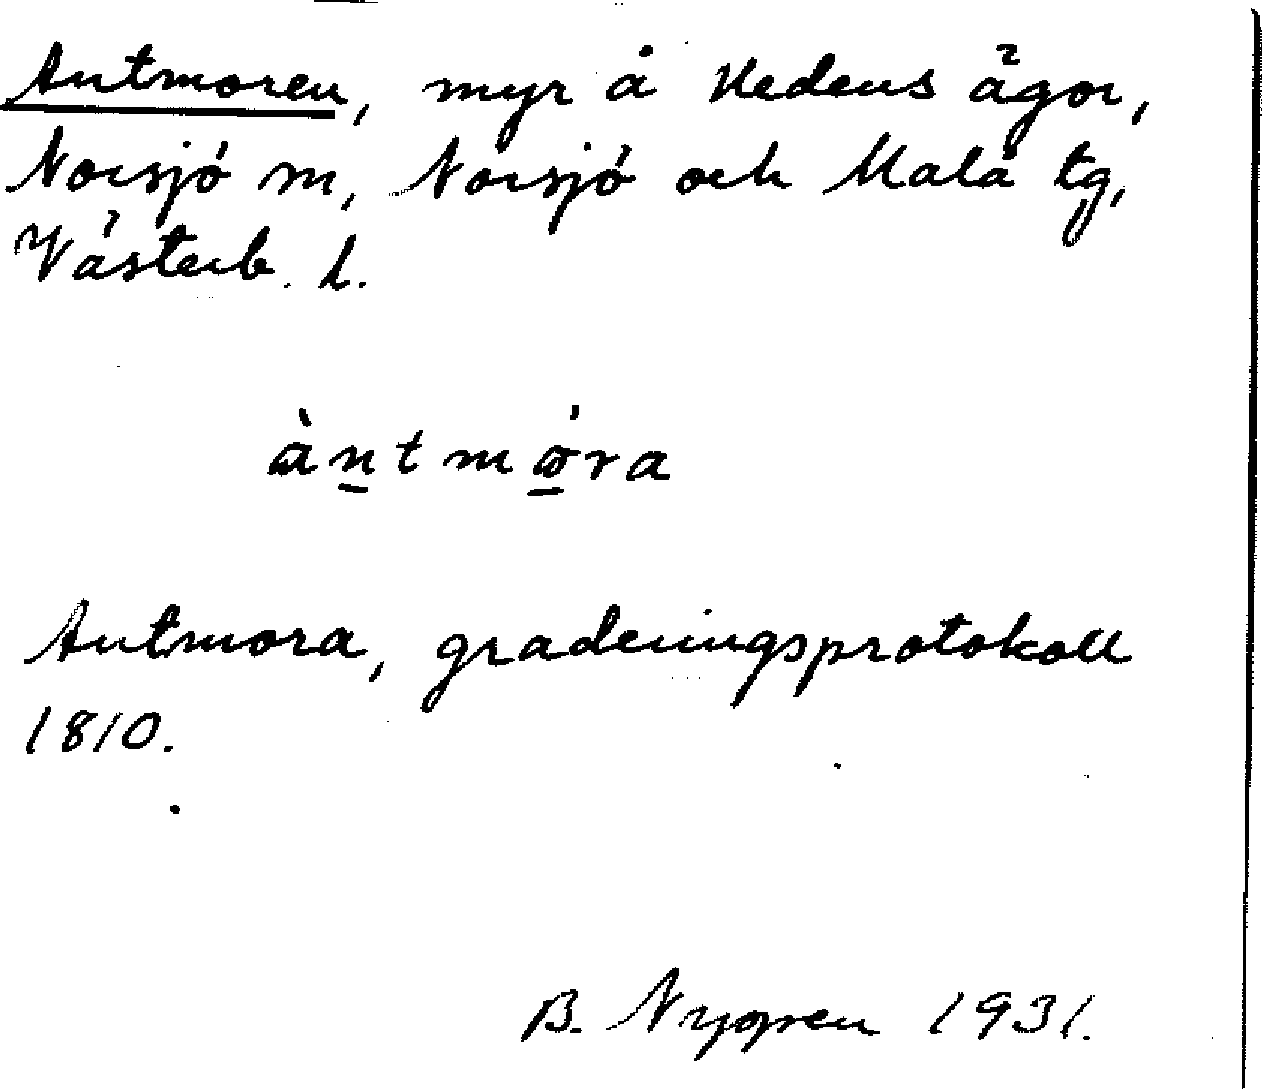 Antmoren, myr å Hedens ägor,
Norsjö sn, Norsjö och Malå tg,
Västerb. l.
àn̲tmɷ̲̀ra
Antmora, graderingsprotokoll
1810.
B. Nygren 1931.